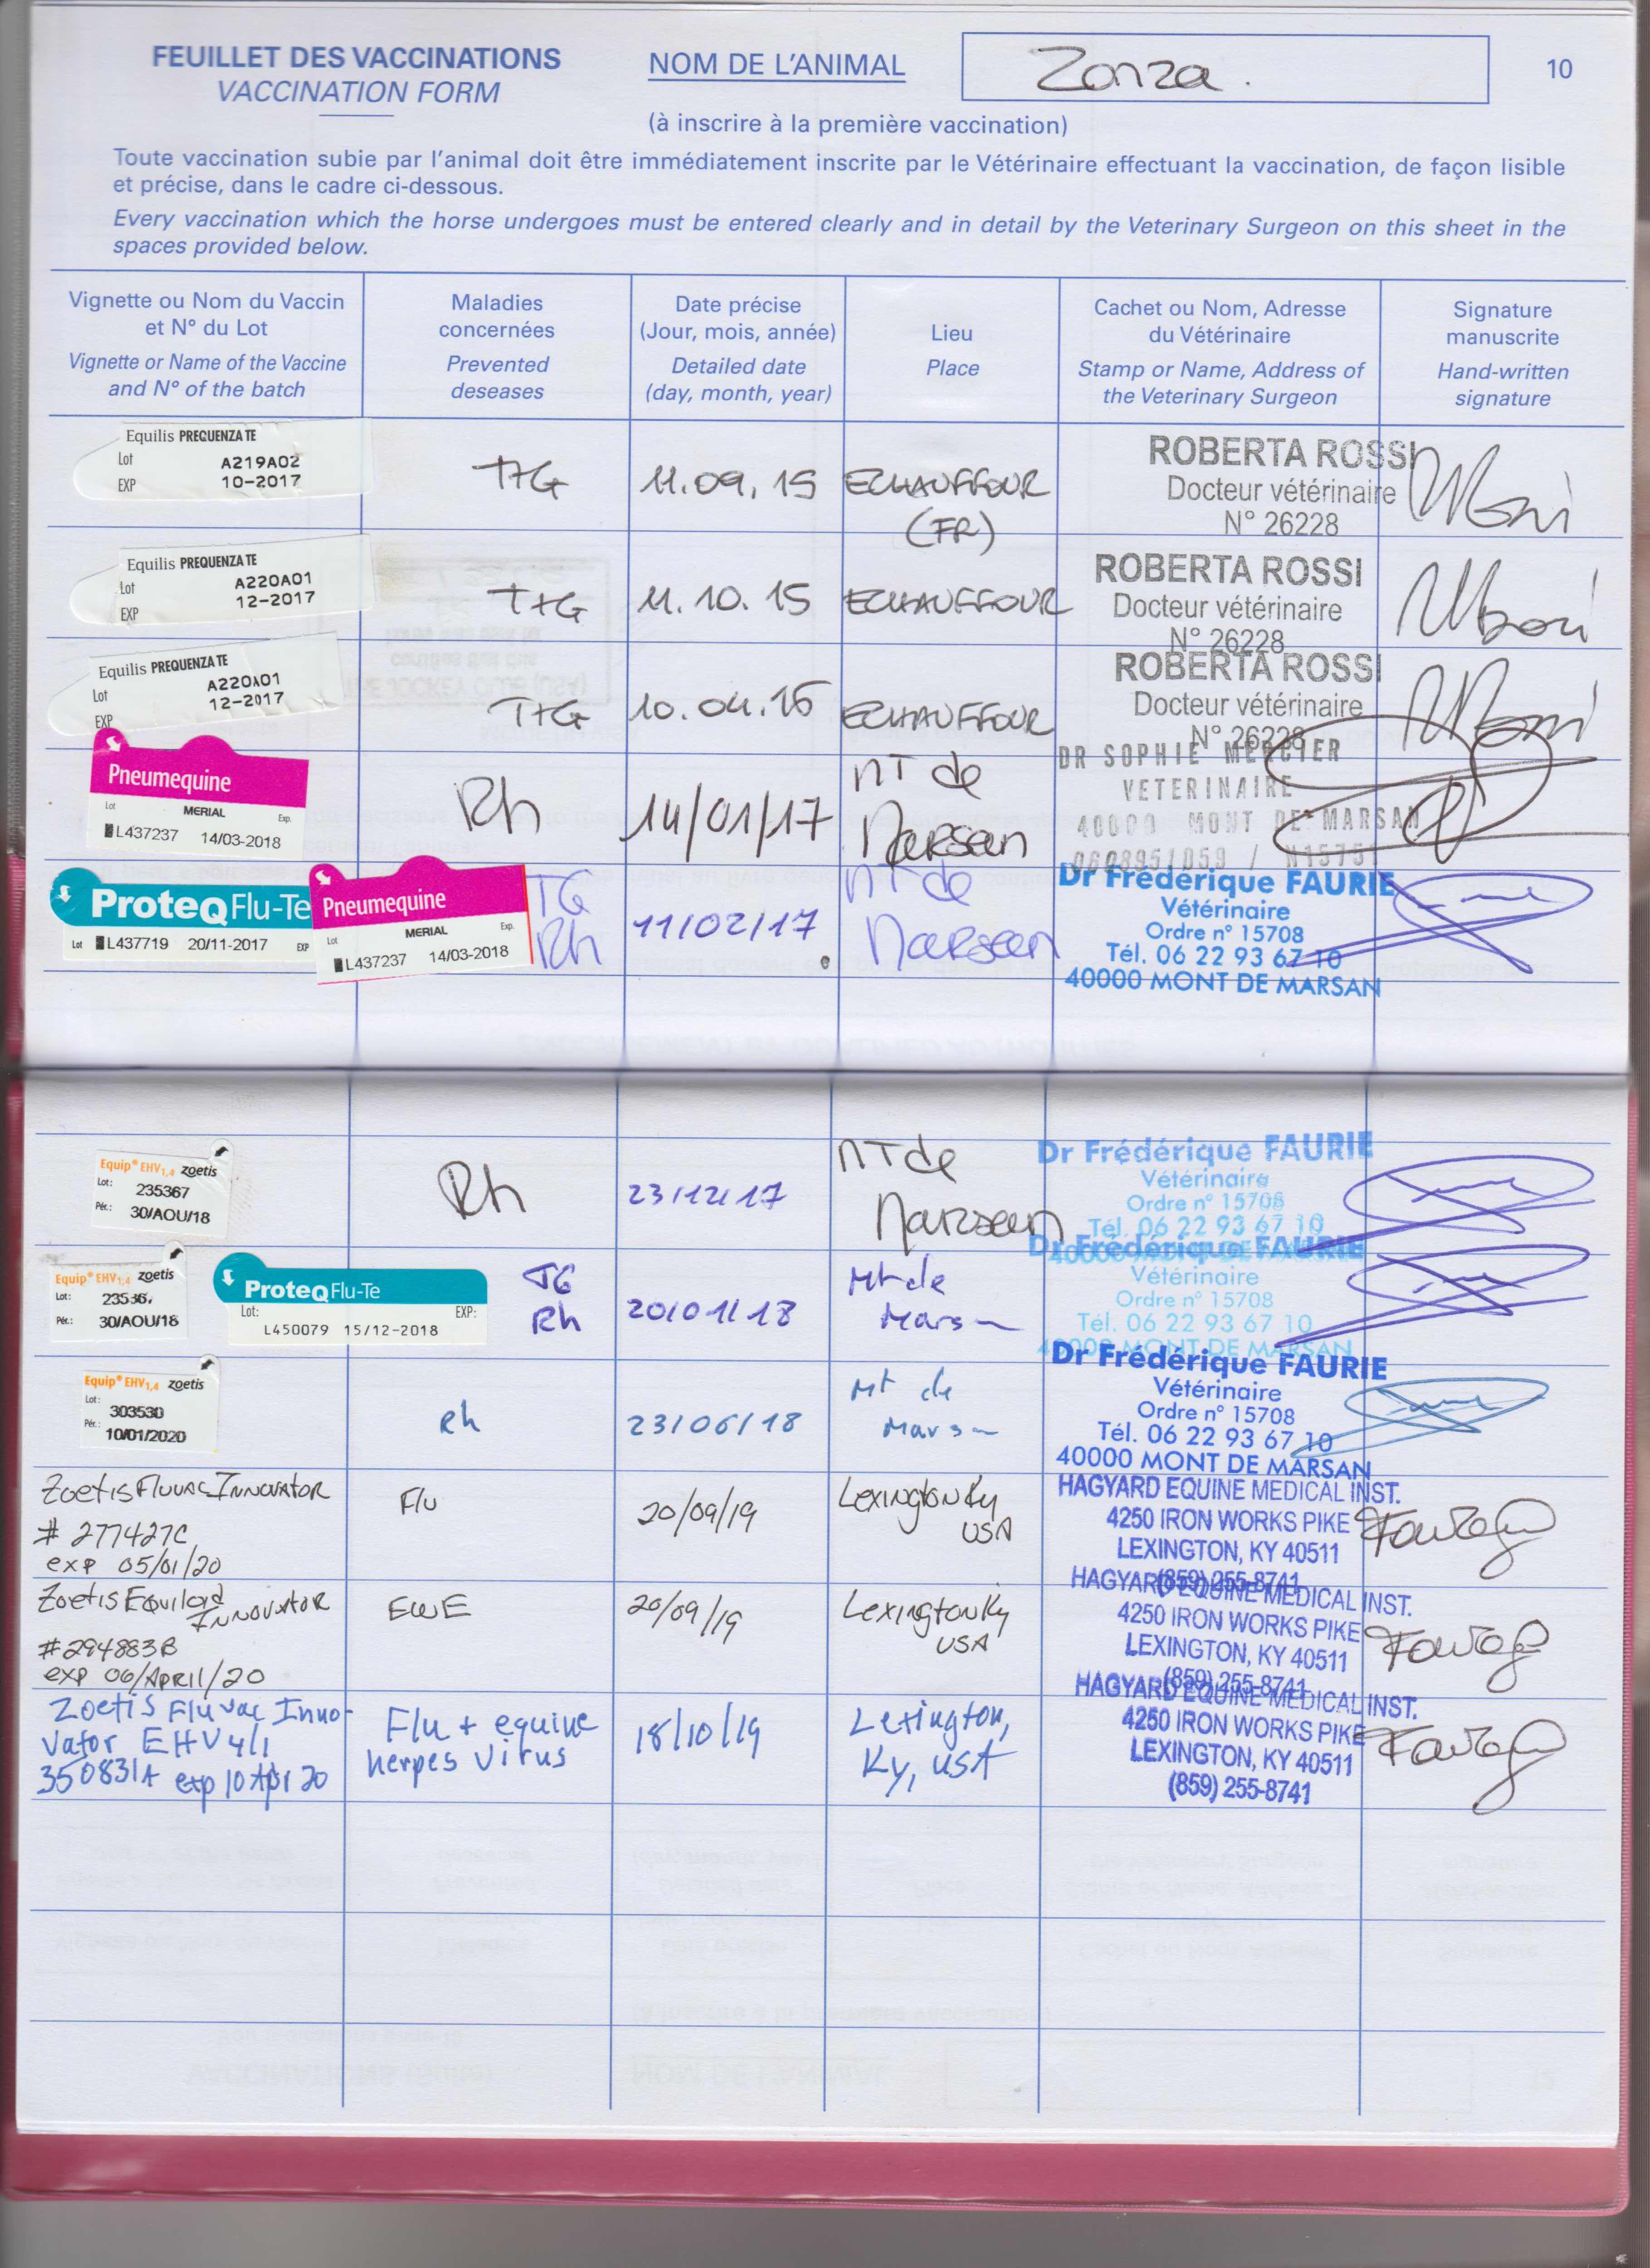 FEUILLET DES VACCINATIONS
VACCINATION FORM
NOM DE L'ANIMAL
Zonza.
10
(à inscrire à la première vaccination)
Toute vaccination subie par l'animal doit être immédiatement inscrite par le Vétérinaire effectuant la vaccination, de façon lisible
et précise, dans le cadre ci-dessous.
Every vaccination which the horse undergoes must be entered clearly and in detail by the Veterinary Surgeon on this sheet in the
spaces provided below.
Vignette ou Nom du Vaccin
et N° du Lot
Vignette or Name of the Vaccine
and N° of the batch
Maladies
concernées
Prevented
deseases
Date précise
(Jour, mois, année)
Detailed date
(day, month, year)
Lieu
Place
Cachet ou Nom, Adresse
du Vétérinaire
Stamp or Name, Address of
the Veterinary Surgeon
Signature
manuscrite
Hand-written
signature
Equilis PREQUENZA TE
Lot A219A02
EXP 10-2017
T+G
11.09.15
ECHAUFFOUR
(FR)
ROBERTA ROSSI
Docteur vétérinaire
N° 26228
Equilis PREQUENZA TE
Lot A220A01
EXP 12-2017
T+G
11.10.15
ECHAUFFOUR
ROBERTA ROSSI
Docteur vétérinaire
N° 26228
Equilis PREQUENZA TE
Lot A220A01
EXP 12-2017
T+G
10.04.16
ECHAUFFOUR
ROBERTA ROSSI
Docteur vétérinaire
N° 26228
Pneumequine
Lot MERIAL Exp.
L437237 14/03-2018
Rh
14/01/17
MT de
Marsan
DR SOPHIE MERCIER
VETERINAIRE
40000 MONT DE MARSAN
0608951059 / N15751
ProteqFlu-Te
Lot L437719 20/11-2017 EXP
Pneumequine
Lot MERIAL Exp.
L437237 14/03-2018
TG
Rh
11/02/17
MT de
Marsan
Dr Frédérique FAURIE
Vétérinaire
Ordre n° 15708
Tél. 06 22 93 67 10
40000 MONT DE MARSAN
Equip® EHV1,4 zoetis
Lot: 235367
Pér.: 30/AOU/18
Rh
23/12/17
MT de
Marsan
Dr Frédérique FAURIE
Vétérinaire
Ordre n° 15708
Tél. 06 22 93 67 10
Equip® EHV1,4 zoetis
Lot: 23536
Pér.: 30/AOU/18
ProteqFlu-Te
Lot: EXP:
L450079 15/12-2018
TG
Rh
20/01/18
Mt de
Marsan
Dr Frédérique FAURIE
Vétérinaire
Ordre n° 15708
Tél. 06 22 93 67 10
40000 MONT DE MARSAN
Equip® EHV1,4 zoetis
Lot: 303530
Pér.: 10/01/2020
Rh
23/06/18
Mt de
Marsan
Dr Frédérique FAURIE
Vétérinaire
Ordre n° 15708
Tél. 06 22 93 67 10
40000 MONT DE MARSAN
Zoetis Fluvac Innovator
# 277427C
exp 05/01/20
Flu
20/09/19
Lexington Ky
USA
HAGYARD EQUINE MEDICAL INST.
4250 IRON WORKS PIKE
LEXINGTON, KY 40511
(859) 255-8741
Zoetis Equiloid
Innovator
#294883B
exp 06/April/20
EWE
20/09/19
Lexington Ky
USA
HAGYARD EQUINE MEDICAL INST.
4250 IRON WORKS PIKE
LEXINGTON, KY 40511
(859) 255-8741
Zoetis Fluvac Inno-
vator EHV 4/1
350831A exp 10 Apr 20
Flu + equine
herpes virus
18/10/19
Lexington,
Ky, USA
HAGYARD EQUINE MEDICAL INST.
4250 IRON WORKS PIKE
LEXINGTON, KY 40511
(859) 255-8741